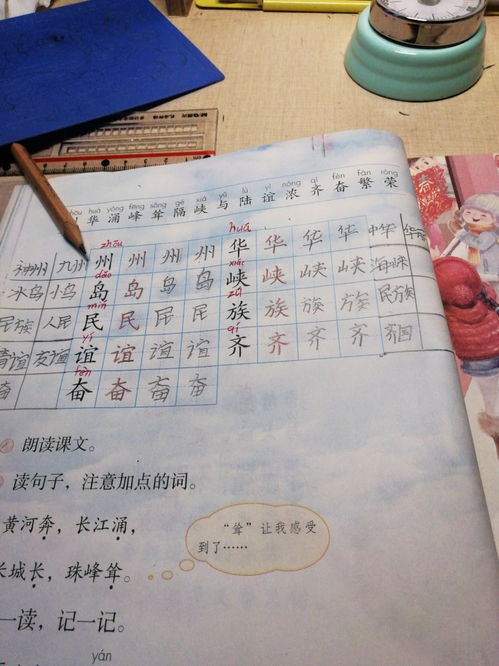 zhōu huá yǒng fēng sǒng gé xiá yǔ lù yì nóng qí fèn fán róng
华 涌 峰 耸 隔 峡 与 陆 谊 浓 齐 奋 繁 荣
zhōu huá
神州 九州 州 州 州 州 华 华 华 华 中华
dǎo xiá
冰岛 小岛 岛 岛 岛 岛 峡 峡 峡 峡 海峡
mín zú
民族 人民 民 民 民 民 族 族 族 族 民族
yì qí
友谊 谊 谊 谊 谊 齐 齐 齐 齐 齐国
fèn
奋 奋 奋 奋 奋
朗读课文。
读句子，注意加点的词。
黄河奔，长江涌，
长城长，珠峰耸。
“耸”让我感受
到了……
一读，记一记。
yán